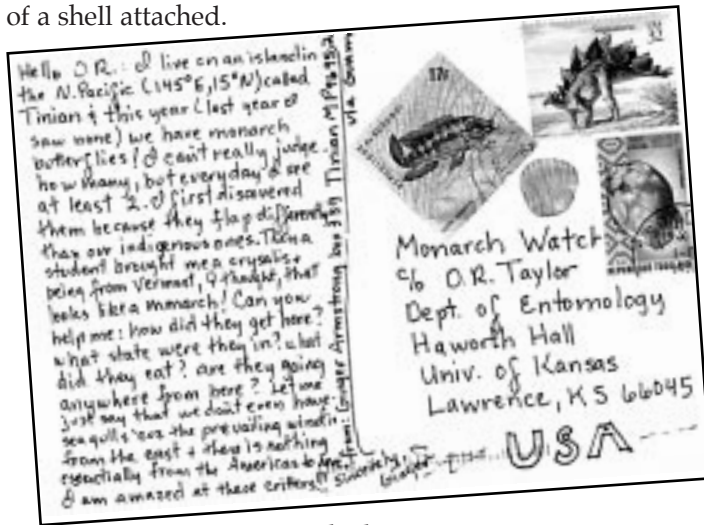 of a shell attached.
Hello O.R.: I live on an island in
the N. Pacific (145°E, 15°N) called
Tinian & this year (last year I
saw none) we have monarch
butterflies! I can't really judge
how many, but everyday I see
at least 2. I first discovered
them because they flap differently
than our indigenous ones. Then a
student brought me a crysalis &
being from Vermont, I thought, that
looks like a monarch! Can you
help me: how did they get here?
what state were they in? what
did they eat? are they going
anywhere from here? Let me
just say that we don't even have
sea gulls 'cuz the prevailing wind is
from the east & there is nothing
essentially from the Americas to here.
I am amazed at these critters!!
Sincerely,
Ginger
from: Ginger Armstrong box Tinian MP 96952
via Guam
32
Monarch Watch
c/o O.R. Taylor
Dept. of Entomology
Haworth Hall
Univ. of Kansas
Lawrence, KS 66045
USA